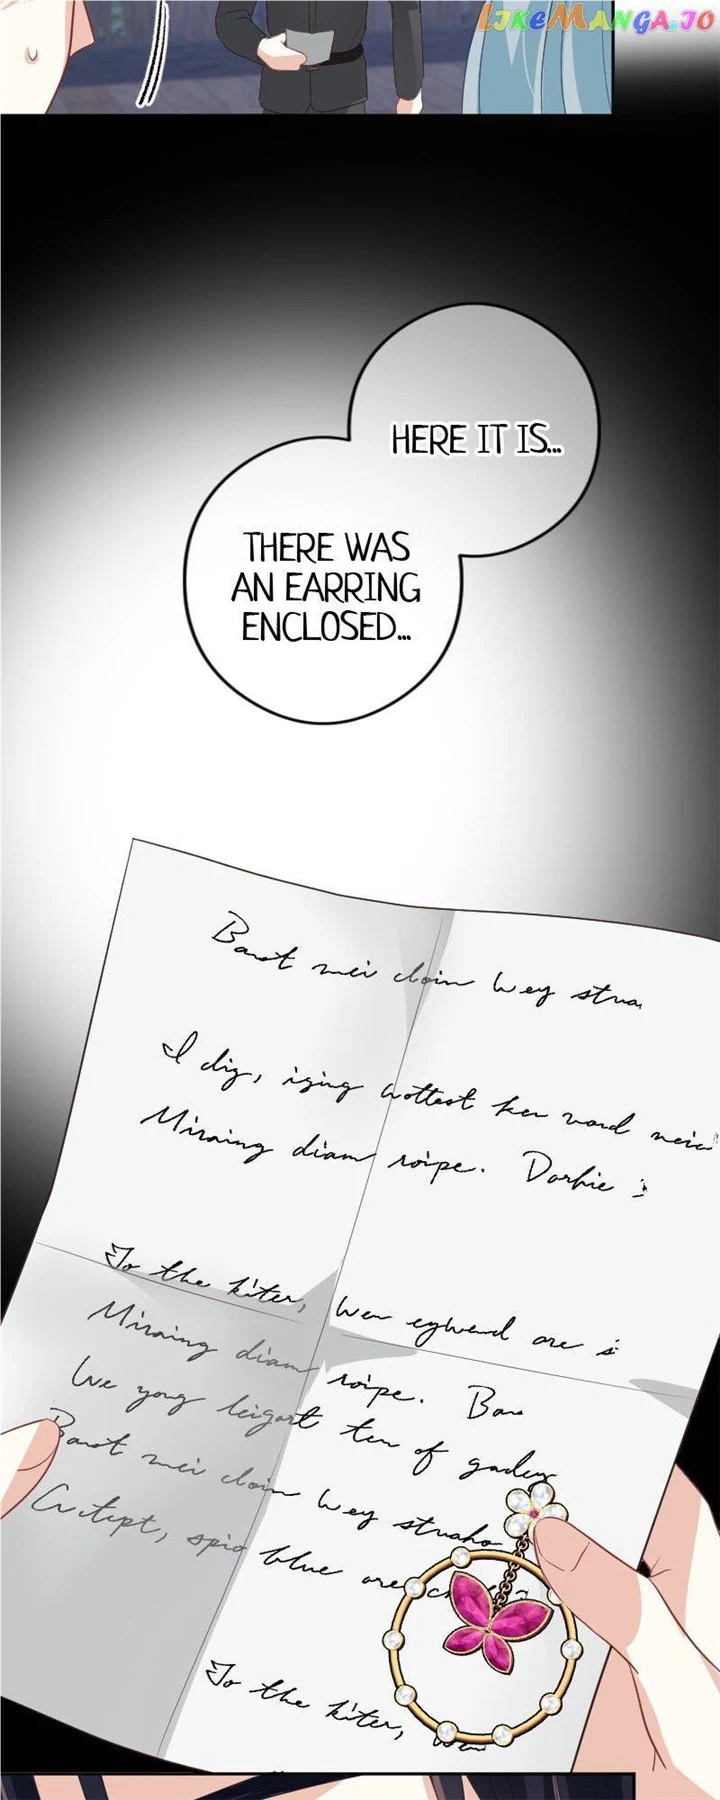 LIKEMANGA.IO
HERE IT IS...
THERE WAS
AN EARRING
ENCLOSED...
Baost mei cloin wey strua
I dig, iging wottest ken vord
Miraing diam roipe. Dorhie
To the kiter, Wen egwend are s
Miraing diam roipe. Bas
We yong leigast ten of gaduy
Baost mei cloin wey struaho
spio blue are
To the kiter,